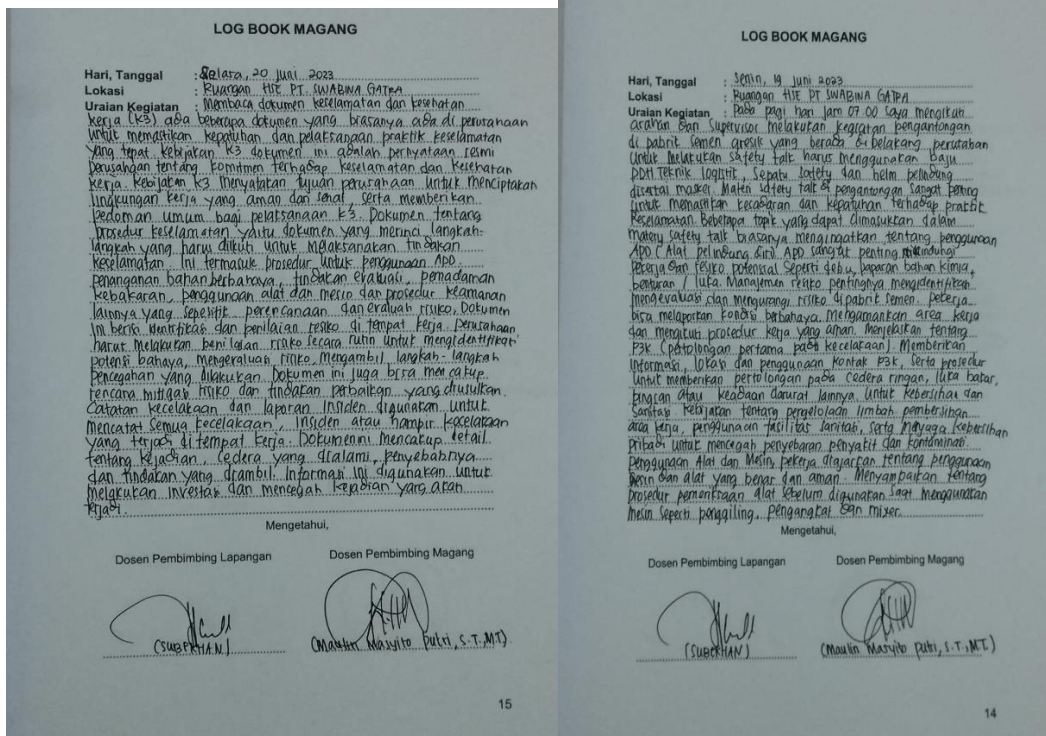 LOG BOOK MAGANG
Hari, Tanggal : Selasa, 20 Juni 2023
Lokasi : Ruangan HSE PT. SWABINA GATRA
Uraian Kegiatan : Membaca dokumen keselamatan dan kesehatan
kerja (K3) ada beberapa dokumen yang biasanya ada di perusahaan
untuk memastikan kepatuhan dan pelaksanaan praktik keselamatan
yang tepat kebijakan K3 dokumen ini adalah pernyataan resmi
perusahaan tentang komitmen terhadap keselamatan dan kesehatan
kerja. Kebijakan K3 menyatakan tujuan perusahaan untuk menciptakan
lingkungan kerja yang aman dan sehat, serta memberikan
pedoman umum bagi pelaksanaan K3. Dokumen tentang
prosedur keselamatan yaitu dokumen yang merinci langkah-
langkah yang harus diikuti untuk melaksanakan tindakan
keselamatan. Ini termasuk prosedur untuk penggunaan APD,
penanganan bahan berbahaya, tindakan evakuasi, pemadaman
kebakaran, penggunaan alat dan mesin dan prosedur keamanan
lainnya yang spesifik perencanaan dan evaluasi risiko, Dokumen
ini berisi identifikasi dan penilaian resiko di tempat kerja. Perusahaan
harus melakukan penilaian risiko secara rutin untuk mengidentifikasi
potensi bahaya, mengevaluasi risiko, Mengambil langkah-langkah
pencegahan yang dilakukan. Dokumen ini juga bisa mencakup
rencana mitigasi risiko dan tindakan perbaikan yang diusulkan.
Catatan kecelakaan dan laporan Insiden digunakan untuk
mencatat semua kecelakaan, Insiden atau hampir kecelakaan
yang terjadi di tempat kerja. Dokumen ini Mencakup detail
tentang kejadian, Cedera yang dialami, penyebabnya
dan tindakan yang diambil. Informasi ini digunakan untuk
melakukan investasi dan mencegah kejadian yang akan
terjadi.
Mengetahui,
Dosen Pembimbing Lapangan Dosen Pembimbing Magang
(SUBEKHAN) (Maulin Masyito Putri, S.T.,MT)
15
LOG BOOK MAGANG
Hari, Tanggal : Senin, 19 Juni 2023
Lokasi : Ruangan HSE PT SWABINA GATRA
Uraian Kegiatan : Pada pagi hari jam 07.00 saya mengikuti
arahan dan Supervisor melakukan kegiatan pengantongan
di pabrik semen gresik yang berada di belakang perusahaan
untuk melakukan safety talk harus menggunakan baju
PDH Teknik logistik, Sepatu safety dan helm pelindung
disertai masker. Materi safety talk di pengantongan sangat penting
untuk memastikan kesadaran dan kepatuhan terhadap praktik
keselamatan. Beberapa topik yang dapat dimasukkan dalam
matery safety talk biasanya mengingatkan tentang penggunaan
APD (Alat pelindung diri) APD sangat penting melindungi
pekerja dan resiko potensial seperti debu, paparan bahan kimia,
benturan / luka. Manajemen resiko pentingnya mengidentifikasi
mengevaluasi dan mengurangi risiko di pabrik semen. pekerja
bisa melaporkan kondisi berbahaya. Mengamankan area kerja
dan mengikuti prosedur kerja yang aman. Menjelaskan tentang
P3K (pertolongan pertama pada kecelakaan) Memberikan
informasi, lokasi dan penggunaan kontak P3K, serta prosedur
untuk memberikan pertolongan pada cedera ringan, luka bakar,
pingsan atau keadaan darurat lainnya. untuk kebersihan dan
sanitasi kebijakan tentang pengelolaan limbah pembersihan
area kerja, penggunaan fasilitas sanitasi, serta menjaga kebersihan
pribadi untuk mencegah penyebaran penyakit dan kontaminasi
Penggunaan Alat dan Mesin pekerja diajarkan tentang penggunaan
mesin dan alat yang benar dan aman. Menyampaikan tentang
prosedur pemeriksaan alat sebelum digunakan saat menggunakan
mesin seperti penggiling, pengangkat dan mixer.
Mengetahui,
Dosen Pembimbing Lapangan Dosen Pembimbing Magang
(SUBEKHAN) (Maulin Masyito Putri, S.T.,MT.)
14